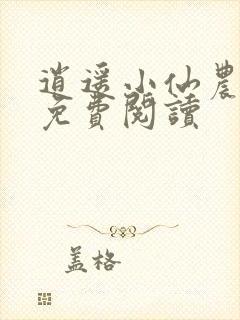 逍遥小仙農
免費閱讀
盖格